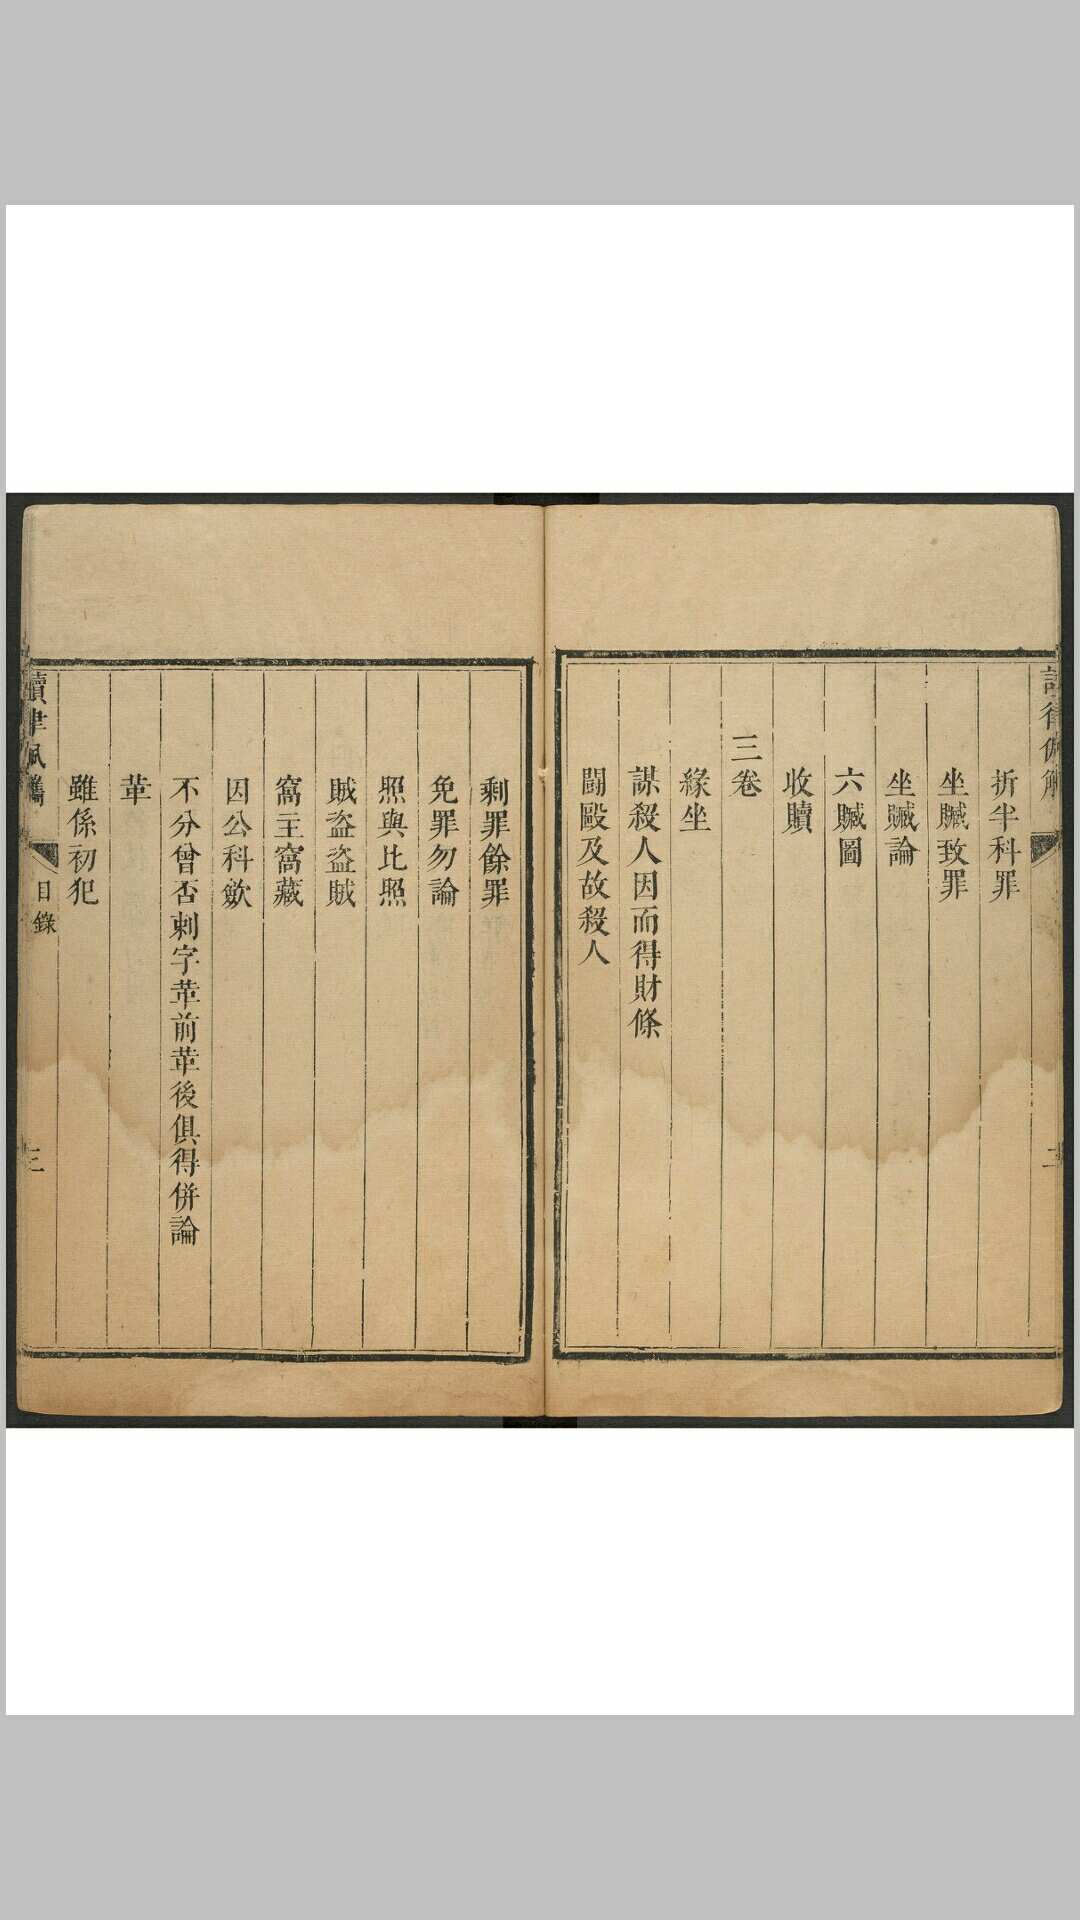 折半科罪
坐贓致罪
坐贓論
六贓圖
收贖
三卷
緣坐
謀殺人因而得財條
鬪毆及故殺人
剩罪餘罪
免罪勿論
照與比照
賊盜盜賊
窩主窩藏
因公科歛
不分曾否刺字革前革後俱得併論
革
雖係初犯
讀律佩觿
目錄
三